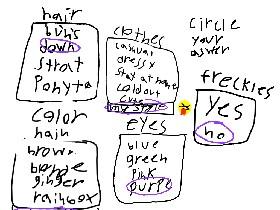 hair
buns
down
strat
Ponyta
clothes
casuual
dressy
stay at home
coldout
cute
my style
circle
your
answer
freckles
yes
no
color
hair
brown
bonde
ginger
rainbox
eyes
blue
green
pink
purpe